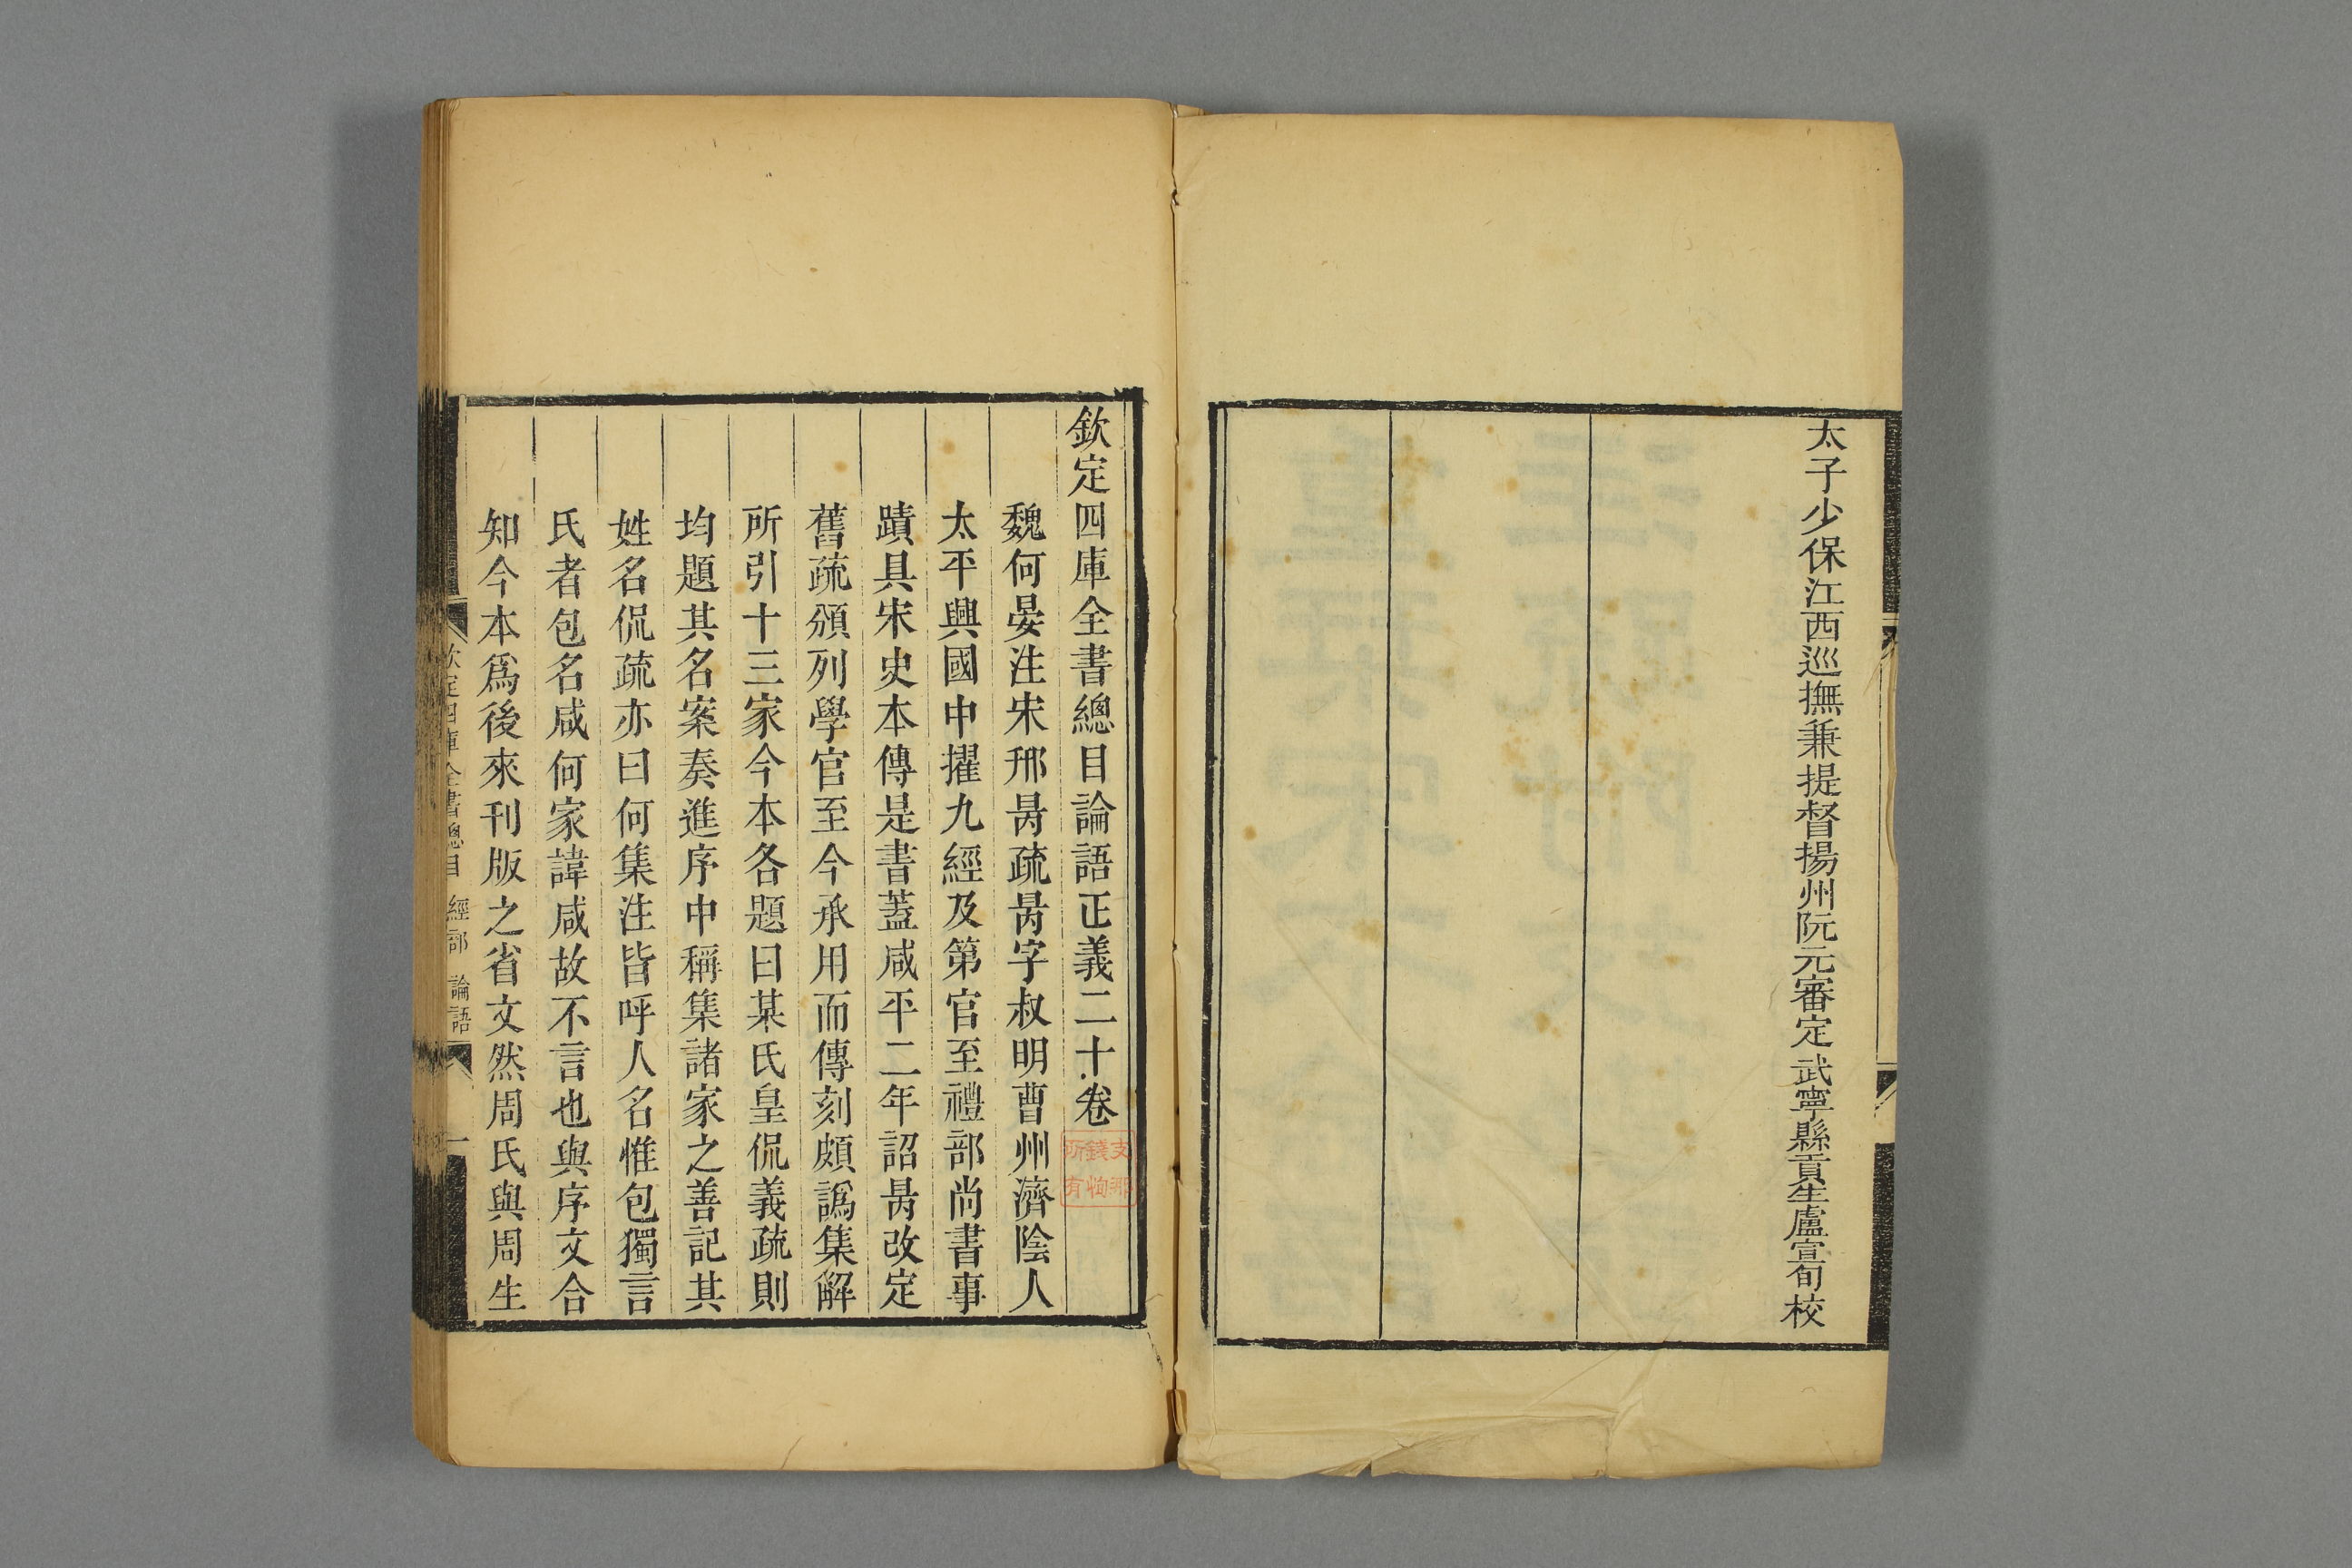 太子少保江西巡撫兼提督揚州阮元審定 武寧縣貢生盧宣旬校
欽定四庫全書總目論語正義二十卷
魏何晏注宋邢昺疏昺字叔明曹州濟陰人
太平興國中擢九經及第官至禮部尚書事
蹟具宋史本傳是書蓋咸平二年詔昺改定
舊疏頒列學官至今承用而傳刻頗譌集解
所引十三家今本各題曰某氏皇侃義疏則
均題其名案奏進序中稱集諸家之善記其
姓名侃疏亦曰何集注皆呼人名惟包獨言
氏者包名咸何家諱咸故不言也與序文合
知今本爲後來刊版之省文然周氏與周生
欽定四庫全書總目 經部 論語
一
支那
錢恂
所有